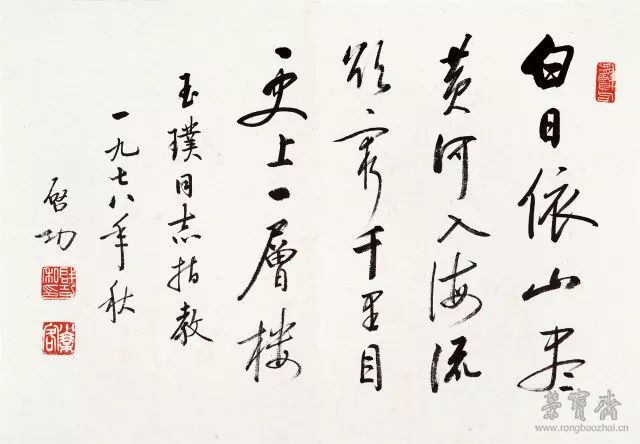 白日依山尽
黄河入海流
欲穷千里目
更上一层楼
玉璞同志指教
一九七八年秋
启功
榮寶齋
www.rongbaozhai.cn